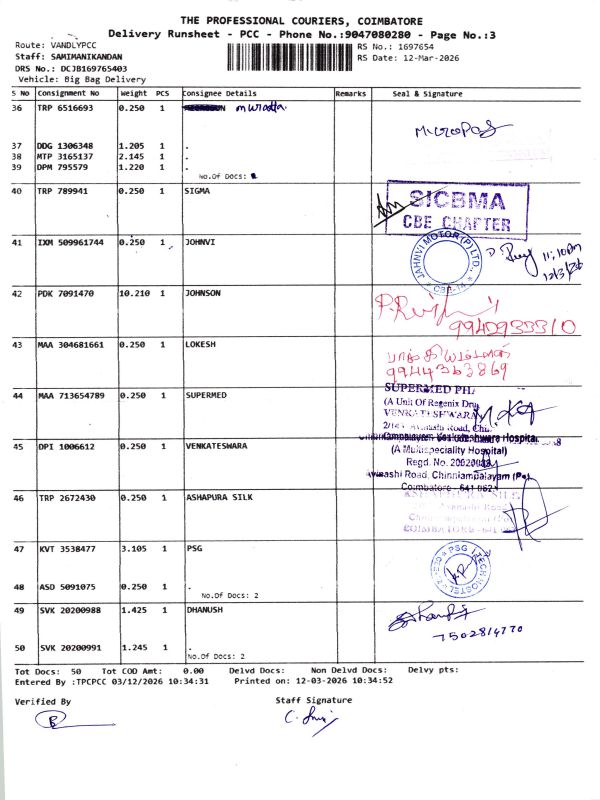 THE PROFESSIONAL COURIERS, COIMBATORE
Delivery Runsheet - PCC - Phone No.:9047080280 - Page No.:3
Route: VANDLYPCC
Staff: SAMIMANIKANDAN
DRS No.: DCJB169765403
Vehicle: Big Bag Delivery
RS No.: 1697654
RS Date: 12-Mar-2026
S No Consignment No Weight PCS Consignee Details Remarks Seal & Signature
36 TRP 6516693 0.250 1
37 DDG 1306348 1.205 1 .
38 MTP 3165137 2.145 1 .
39 DPM 795579 1.220 1 .
No.Of Docs:
40 TRP 789941 0.250 1 SIGMA
SICBMA
CBE CHAPTER
41 IXM 509961744 0.250 1 JOHNVI
JAHNVI MOTOR(P)LTD.,
CBE-14
11:10am
12/3/26
42 PDK 7091470 10.210 1 JOHNSON
9940933310
43 MAA 304681661 0.250 1 LOKESH
9944363869
44 MAA 713654789 0.250 1 SUPERMED
SUPERMED PHA
(A Unit Of Regenix Dru
VENKATESHWARA
Avinashi Road, Chin
45 DPI 1006612 0.250 1 VENKATESWARA
Venkateshwara Hospital
(A Multispeciality Hospital)
Regd. No. 20020048
Avinashi Road, Chinniampalayam (Po)
Coimbatore - 641 062
46 TRP 2672430 0.250 1 ASHAPURA SILK
Avanashi Road
COIMBATORE - 641
47 KVT 3538477 3.105 1 PSG
PSG iTECH HOSTEL
48 ASD 5091075 0.250 1 .
No.Of Docs: 2
49 SVK 20200988 1.425 1 DHANUSH
7502814770
50 SVK 20200991 1.245 1 .
No.Of Docs: 2
Tot Docs: 50 Tot COD Amt: 0.00 Delvd Docs: Non Delvd Docs: Delvy pts:
Entered By :TPCPCC 03/12/2026 10:34:31 Printed on: 12-03-2026 10:34:52
Verified By Staff Signature